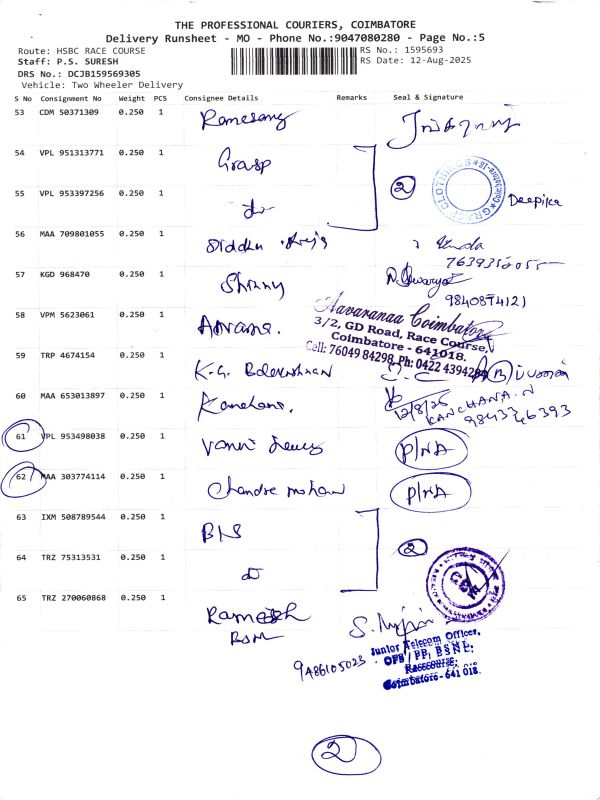 THE PROFESSIONAL COURIERS, COIMBATORE
Delivery Runsheet - MO - Phone No.:9047080280 - Page No.:5
Route: HSBC RACE COURSE
RS No.: 1595693
Staff: P.S. SURESH
RS Date: 12-Aug-2025
DRS No.: DCJB159569305
Vehicle: Two Wheeler Delivery
S No Consignment No Weight PCS Consignee Details Remarks Seal & Signature
53 CDM 50371309 0.250 1
54 VPL 951313771 0.250 1 Grasp
55 VPL 953397256 0.250 1 do
2
Deepika
56 MAA 709801055 0.250 1
57 KGD 968470 0.250 1
9840874121
58 VPM 5623061 0.250 1
Aavaranaa Coimbatore
3/2, GD Road, Race Course,
Coimbatore - 641018.
Cell: 76049 84298, Ph: 0422 4394284
59 TRP 4674154 0.250 1 K.G. Balakrishnan
60 MAA 653013897 0.250 1 Kanchana.
12/8/25
KANCHANA.N
61 VPL 953498038 0.250 1 P/NA
62 MAA 303774114 0.250 1 Chandra mohan P/NA
63 IXM 508789544 0.250 1
64 TRZ 75313531 0.250 1 do
2
65 TRZ 270060868 0.250 1 Ramesh
Junior Telecom Officer,
BSNL,
Racecourse,
Coimbatore - 641 018.
2